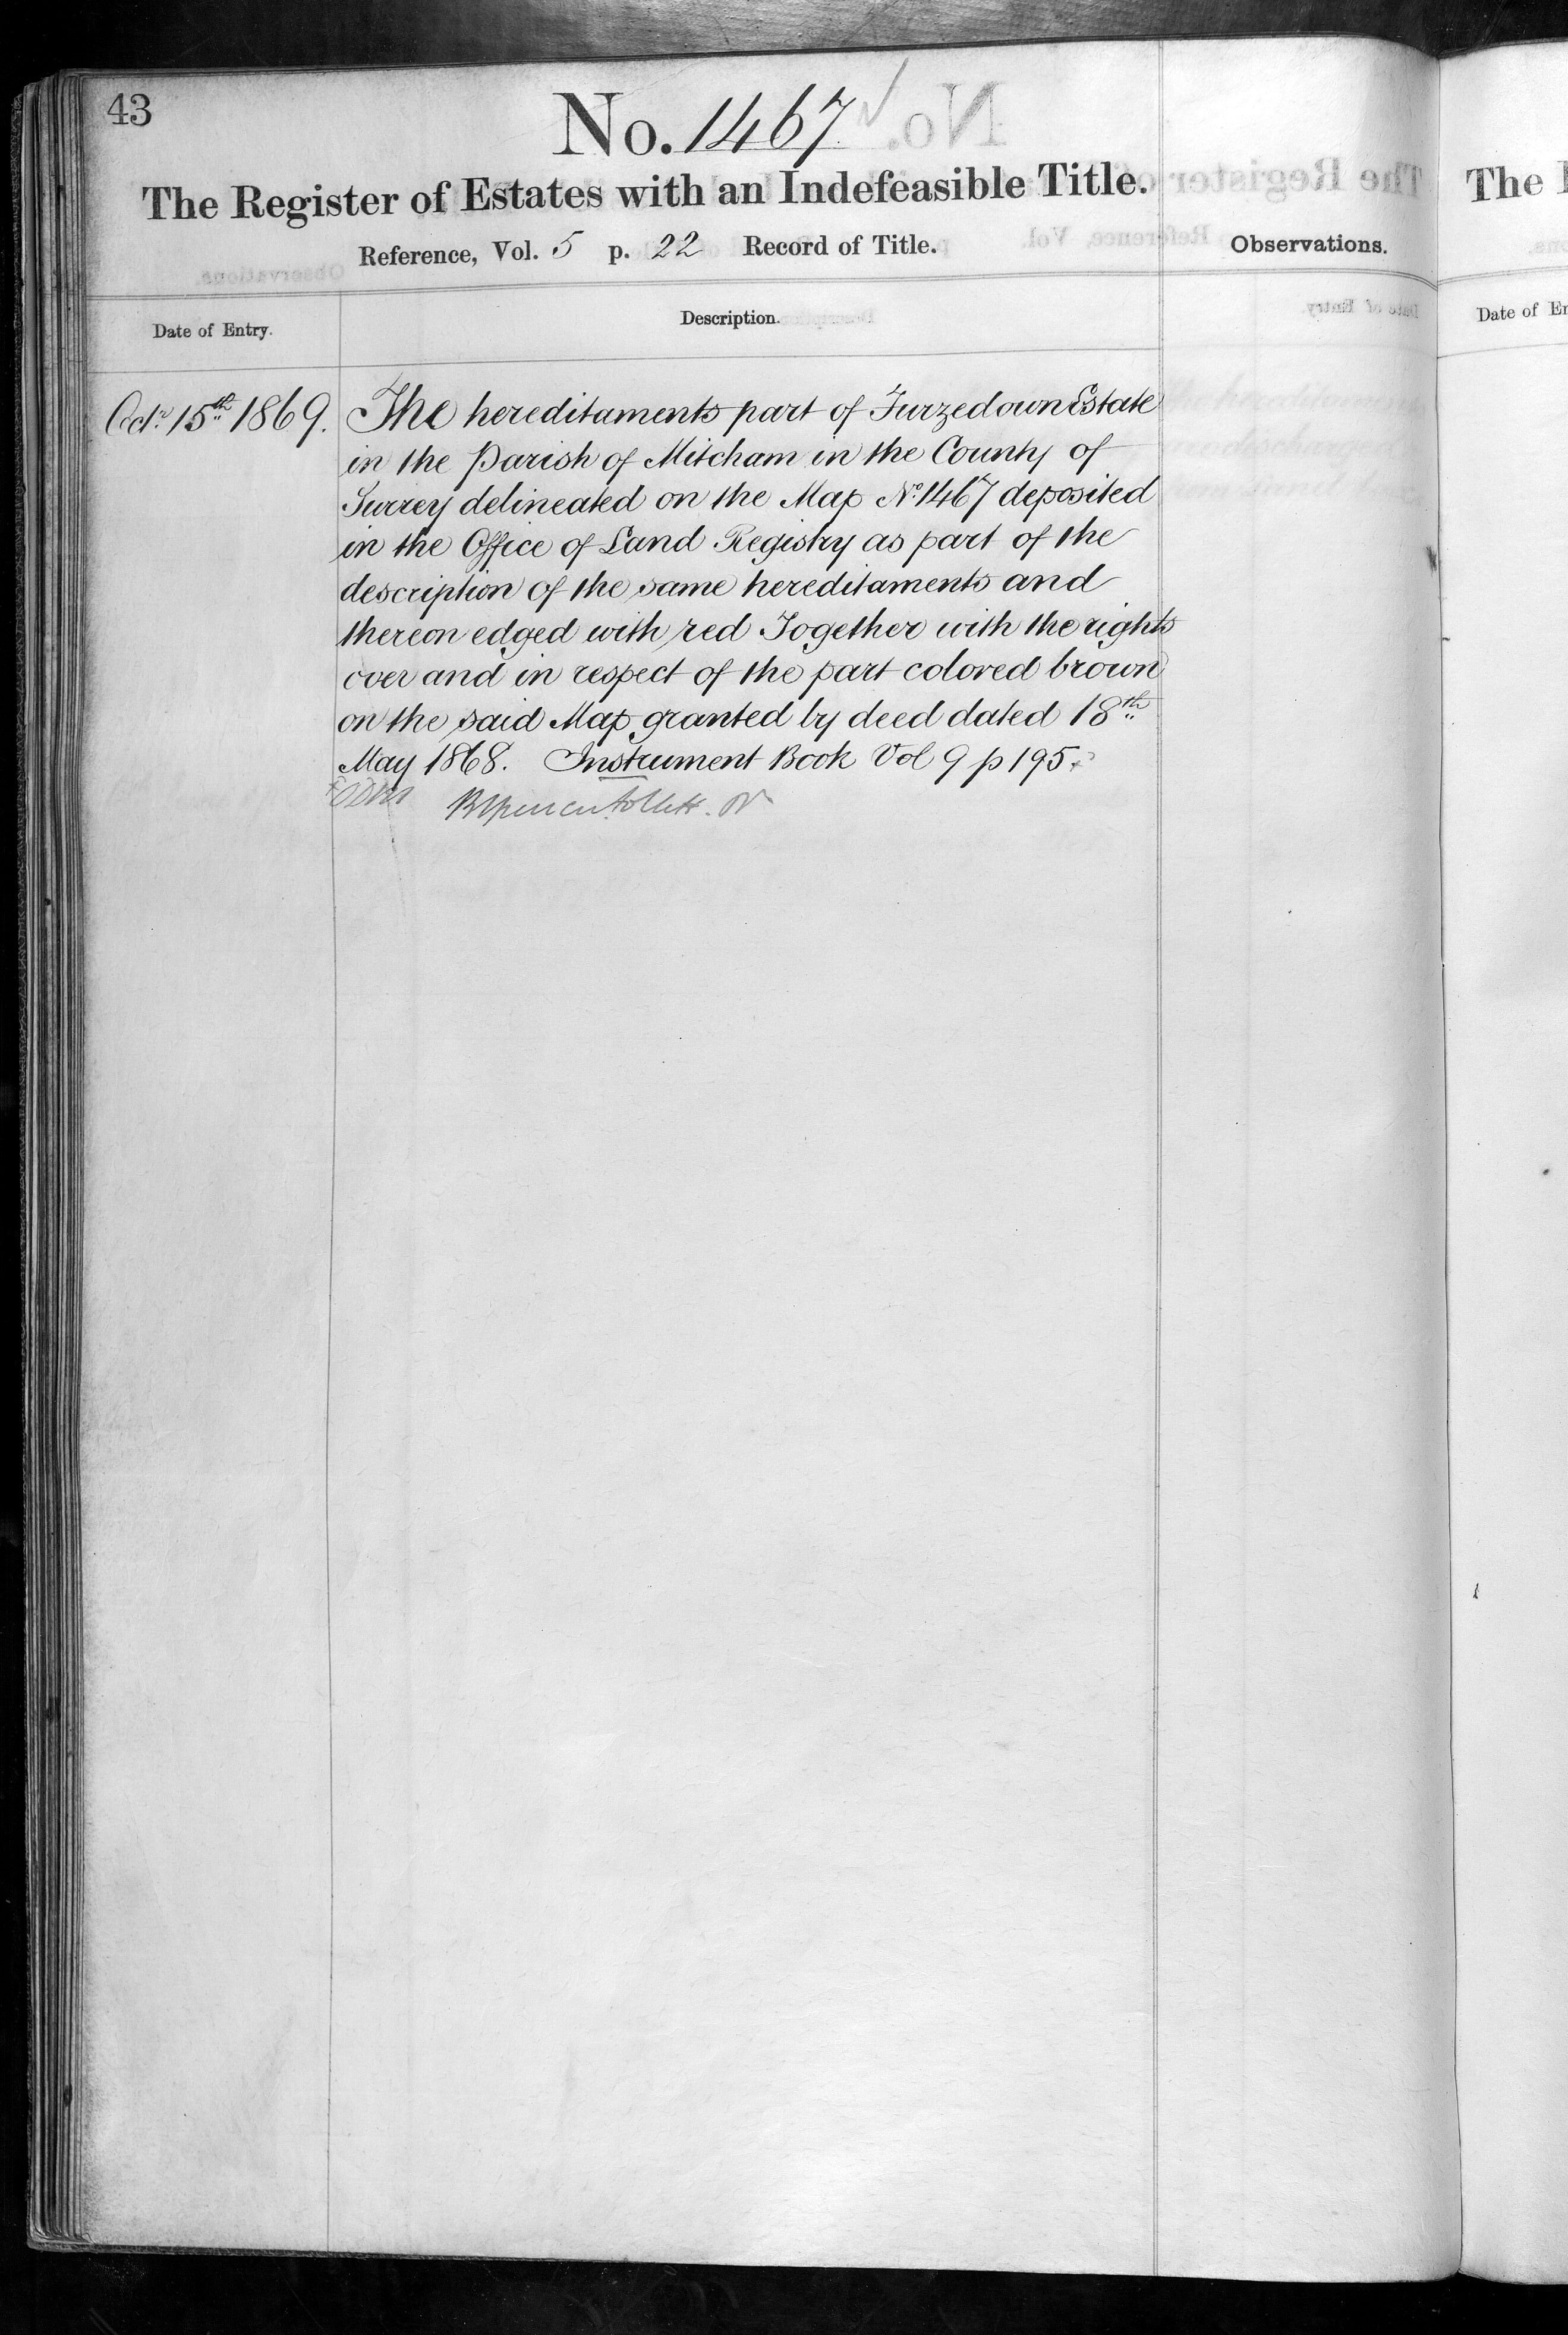 43
No. 1467
The Register of Estates with an Indefeasible Title.
Reference, Vol. 5 p. 22 Record of Title.
Observations.
Date of Entry.
Description.
Octr 15th 1869.
The hereditaments part of Furzedown Estate
in the Parish of Mitcham in the County of
Surrey delineated on the Map No. 1467 deposited
in the Office of Land Registry as part of the
description of the same hereditaments and
thereon edged with red Together with the rights
over and in respect of the part colored brown
on the said Map granted by deed dated 18th
May 1868. Instrument Book Vol 9 p 195.
The
Date of